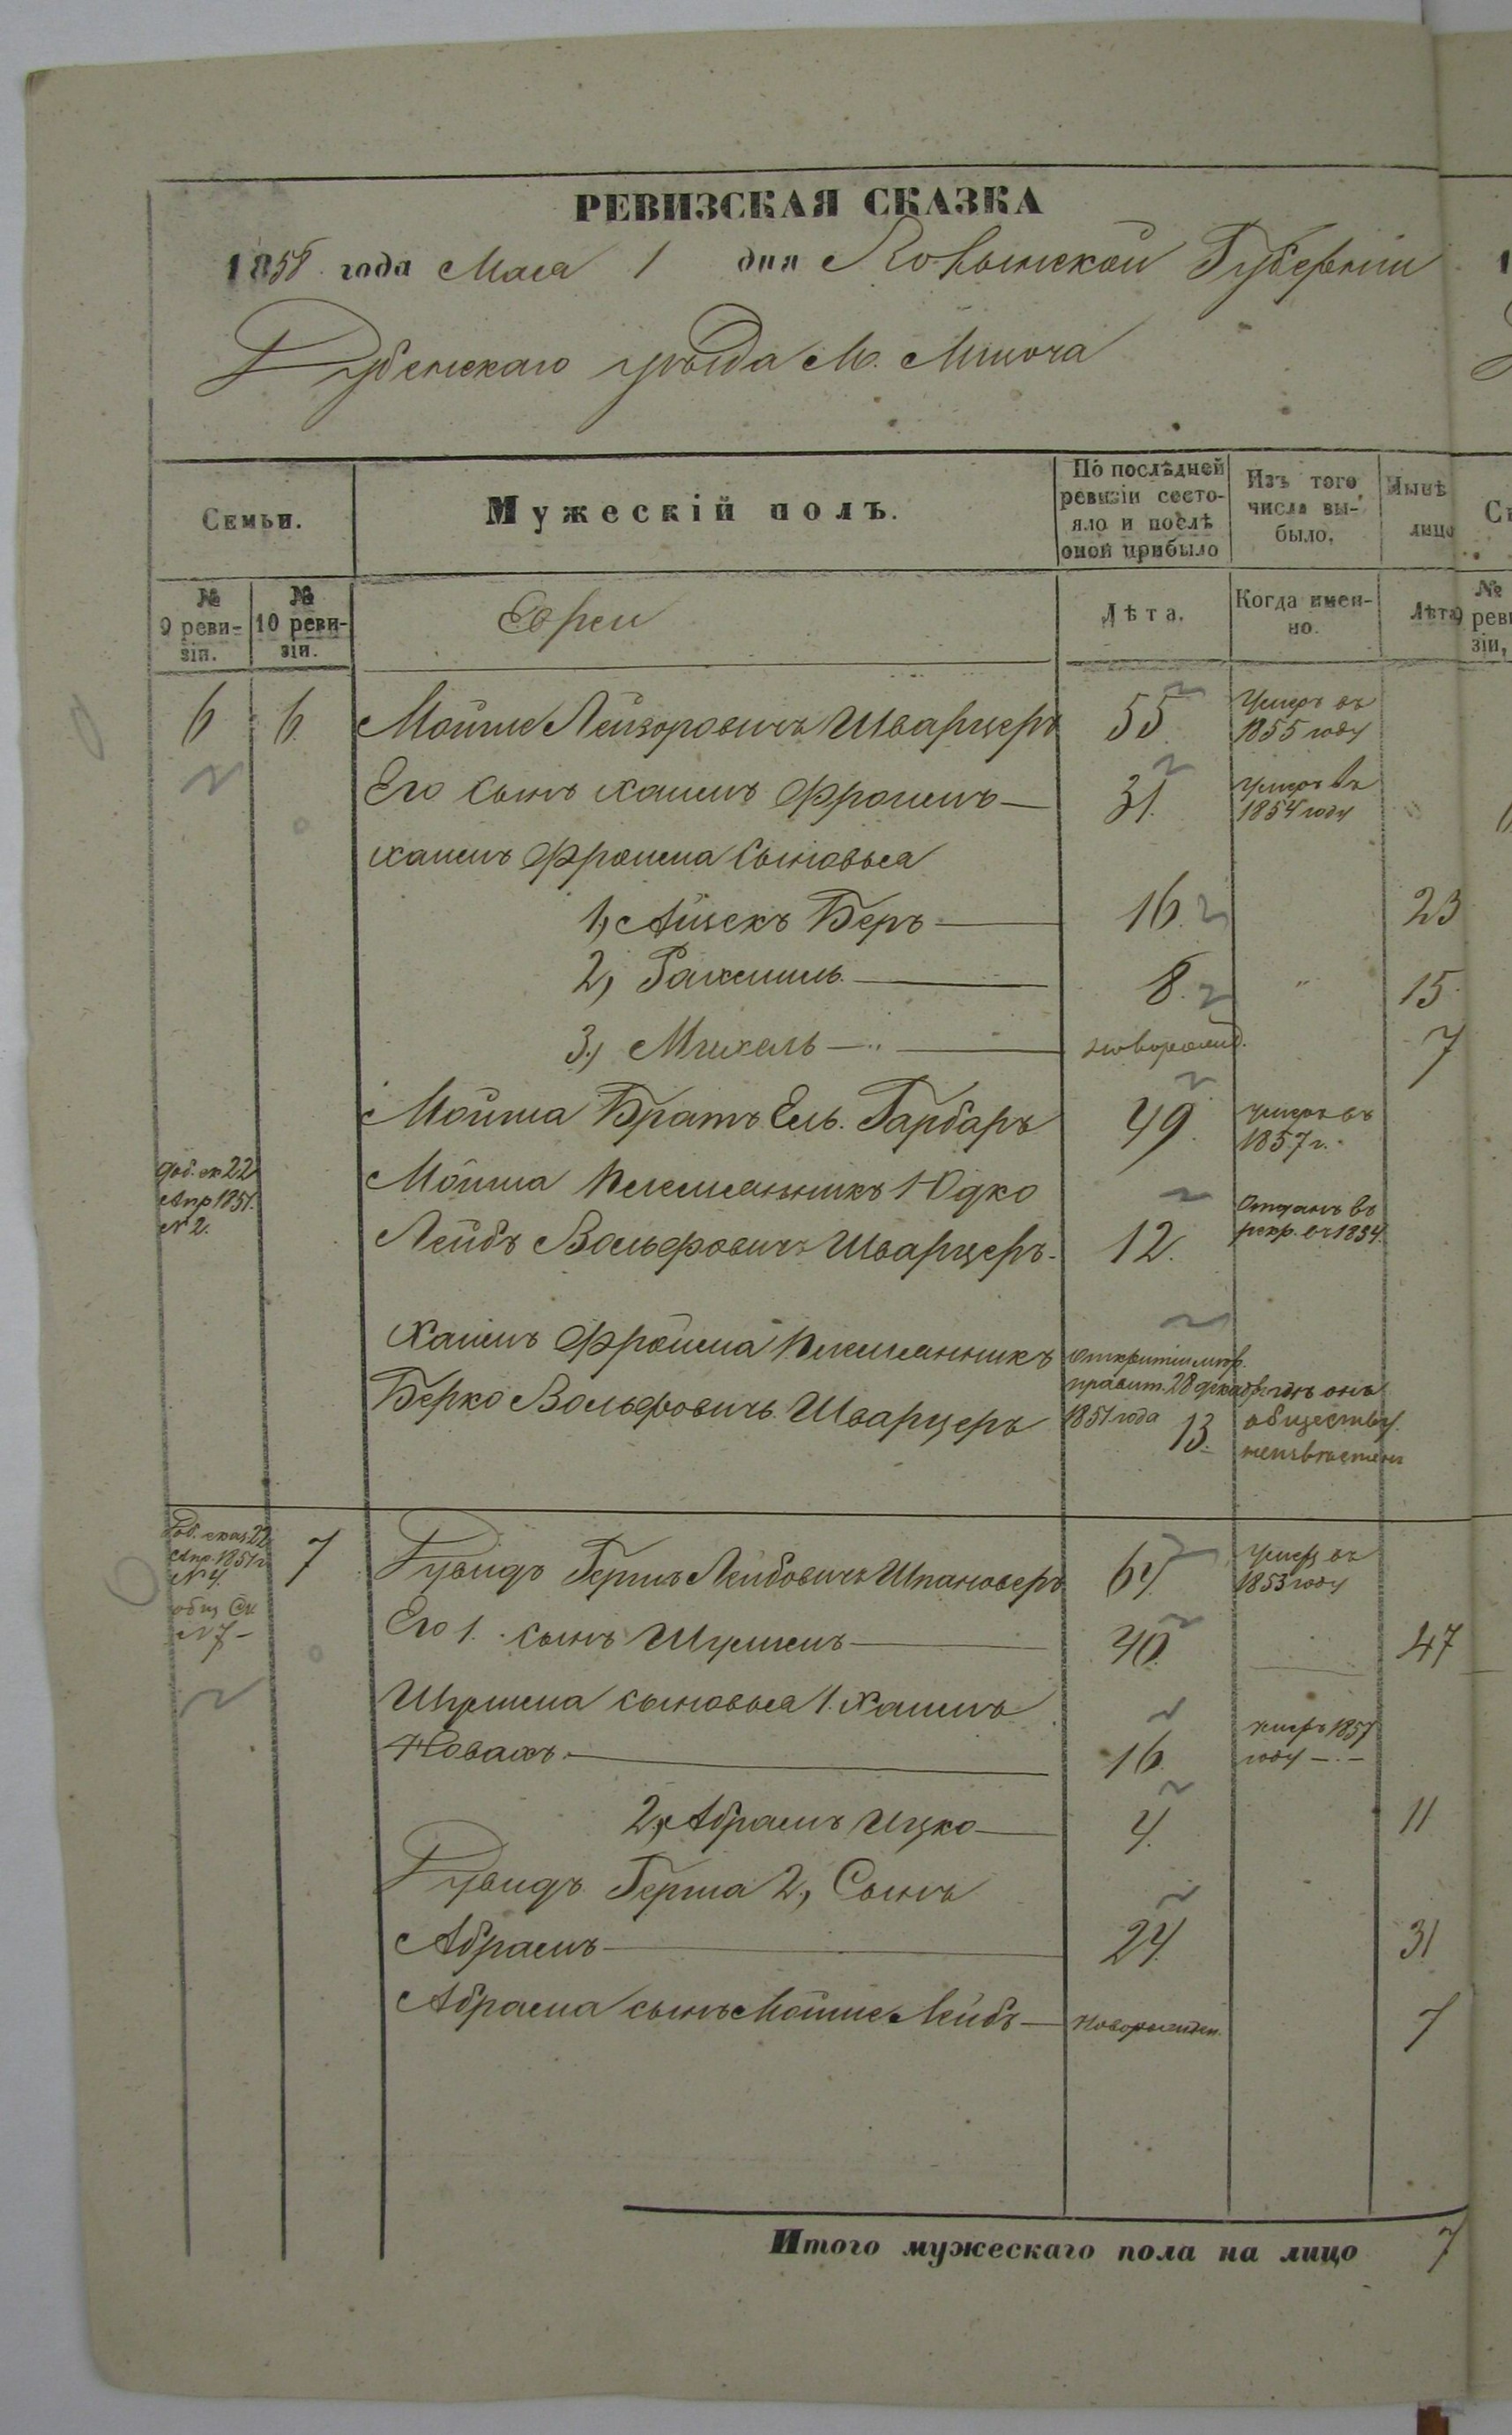 РЕВИЗСКАЯ СКАЗКА
1858 года Мая 1 дня Волынской Губерніи
Дубенскаго уѣзда М. Мизоча
Семьи.
Мужескій полъ.
По послѣдней ревизіи состо-яло и послѣ оной прибыло
Изъ того числа вы-было.
Нынѣ лицо
№ 9 реви-зіи.
№ 10 реви-зіи.
Евреи
Лѣта.
Когда имен-но.
Лѣта
6 6 Мойше Лейзоровичъ Шварцеръ 55 Умеръ въ 1855 году
Его сынъ Хаимъ Фроимъ 31. умеръ въ 1854 году
Хаимъ Фроима сыновья
1, Айзекъ Беръ 16. 23
2, Рахмиль 8. " 15
3, Михель " новорожд. 7
Мойша Братъ Ель. Гарбаръ 49. умеръ въ 1857 г.
доб. ск 22 Апр 1851. №2.
Мойша племянникъ Юдко
Лейбъ Вольфовичъ Шварцеръ. 12. Отданъ въ рекр. въ 1854.
Хаимъ Фроима племянникъ
Берко Вольфовичъ Шварцеръ
правит. 28 декаб.
1851 года 13.
обществу.
неизвѣстенъ
Доб. сказ. 22 Апр. 1851 г. №4.
№7
7 Дувидъ Гершъ Лейбовичъ Шпановеръ 64. Умеръ въ 1853 году
Его 1. сынъ Шулимъ 40. 47
Шулима сыновья 1. Хаимъ
Новахъ. 16. умеръ 1857 году
2, Абрамъ Ицко 4. 11
Дувидъ Герша 2, Сынъ
Абрамъ 24. 31
Абрама сынъ Мойше Лейбъ новорожден. 7
Итого мужескаго пола на лицо 7